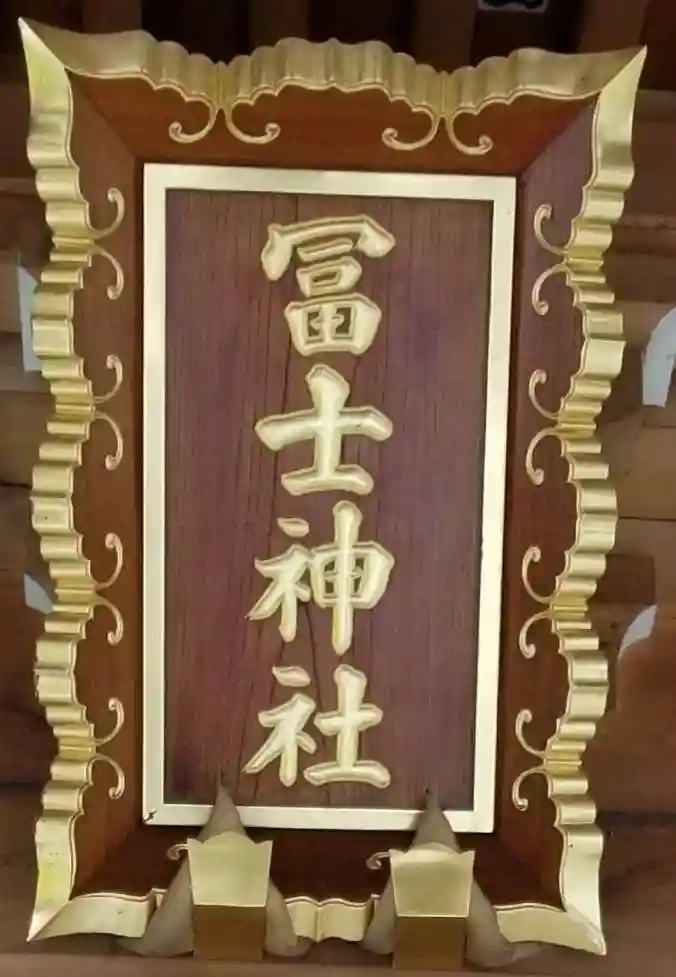 冨士神社